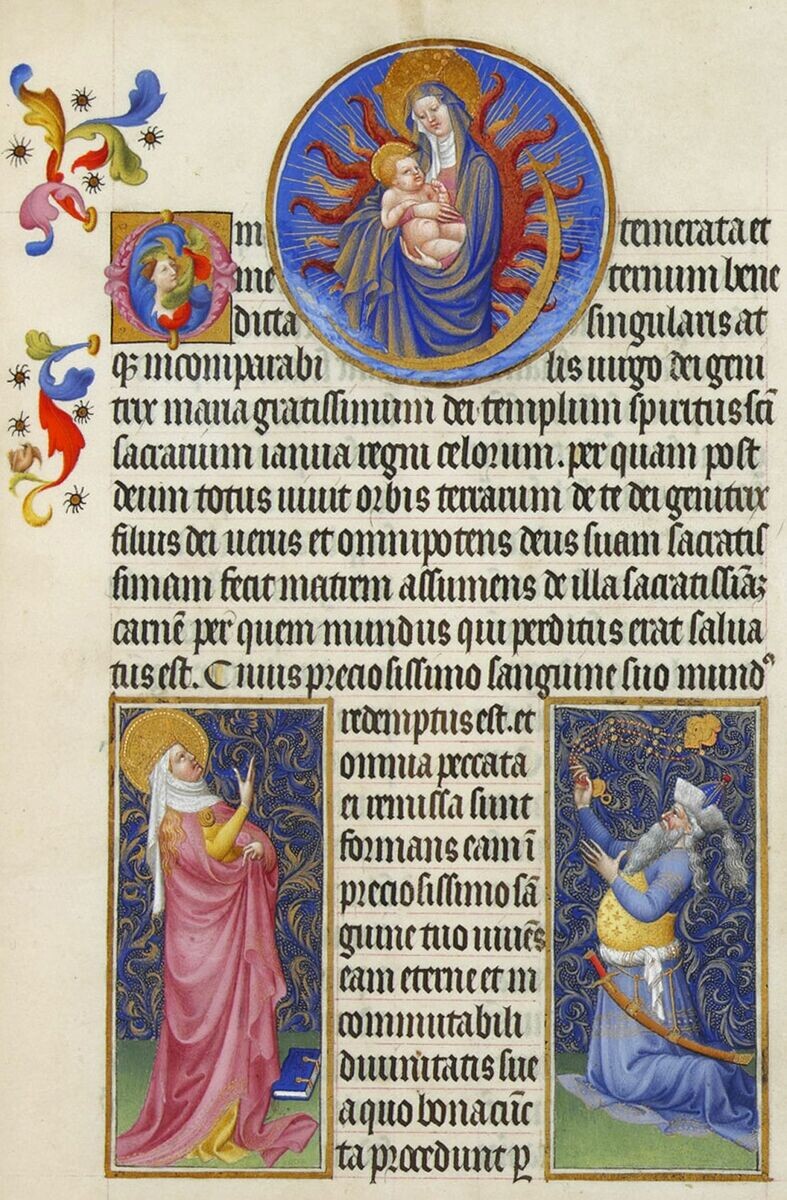 Om temerata et
me ternum bene
dicta singularis at
qꝫ incomparabi lis uirgo dei geni
trix maria gratissimum dei templum spiritus sc̄i
sacrarium ianua regni celorum. per quam post
deum totus uiuit orbis terrarum de te dei genitrix
filius dei uerus et omnipotens deus suam sacratis
simam fecit matrem assumens de illa sacratissiāꝫ
carnē per quem mundus qui perditus erat salua
tus est. Cuius preciosissimo sanguine suo mundꝰ
redemptus est. et
omnia peccata
ei remissa sunt
formans eam ī
preciosissimo sā
guine tuo uiuēs
eam eterne et in
commutabili
diuinitatis sue
a quo bona cūc
ta procedunt ꝑ